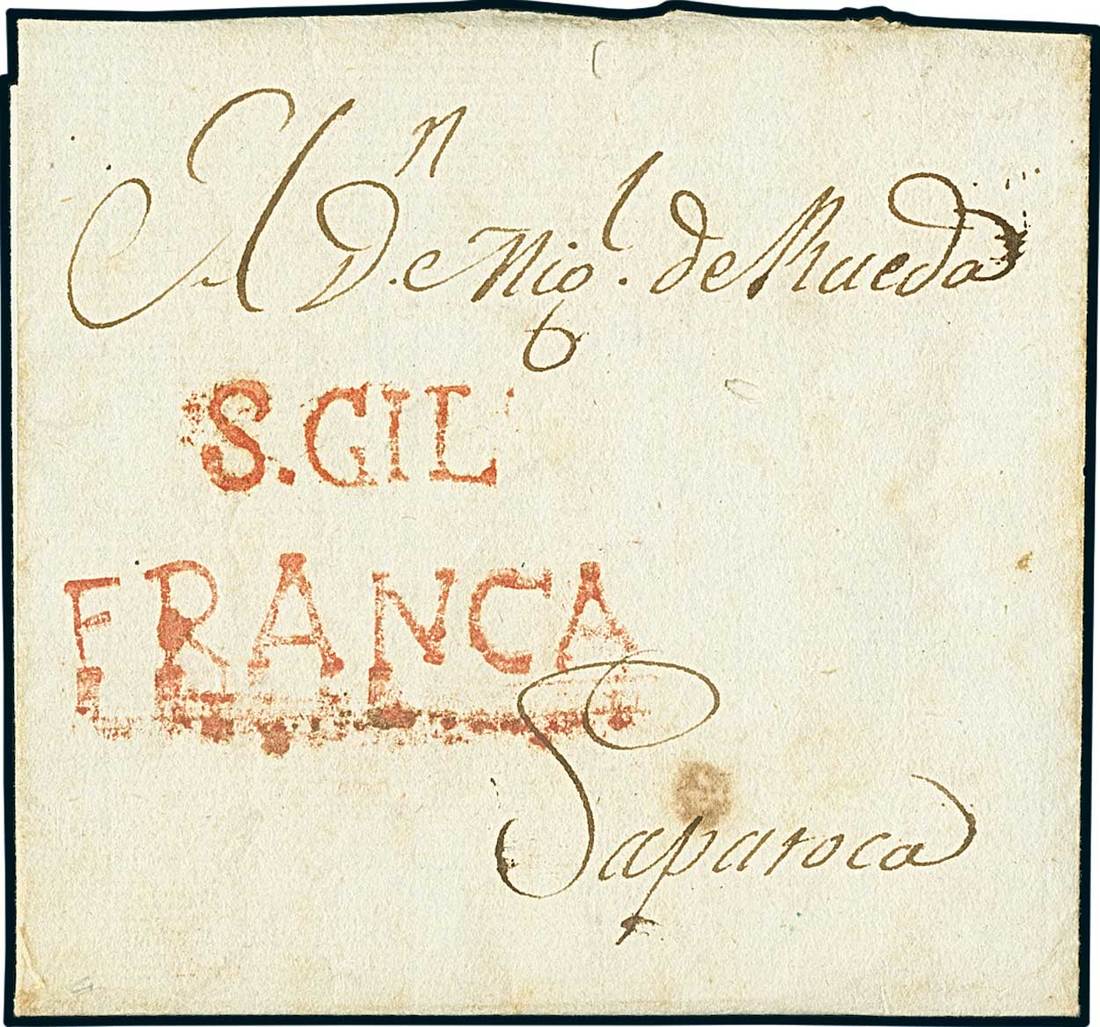 A Dn. Migl. de Rueda
S. GIL
FRANCA
Saparoca